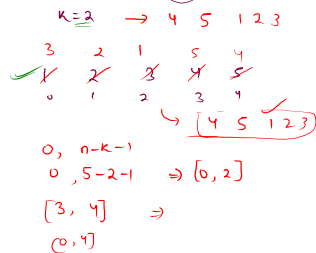 k=2 → 4 5 1 2 3
3 2 1 5 4
1 2 3 4 5
0 1 2 3 4
↳ [4 5 1 2 3]
0, n-k-1
0, 5-2-1 ⇒ [0, 2]
[3, 4] ⇒
(0, 4]